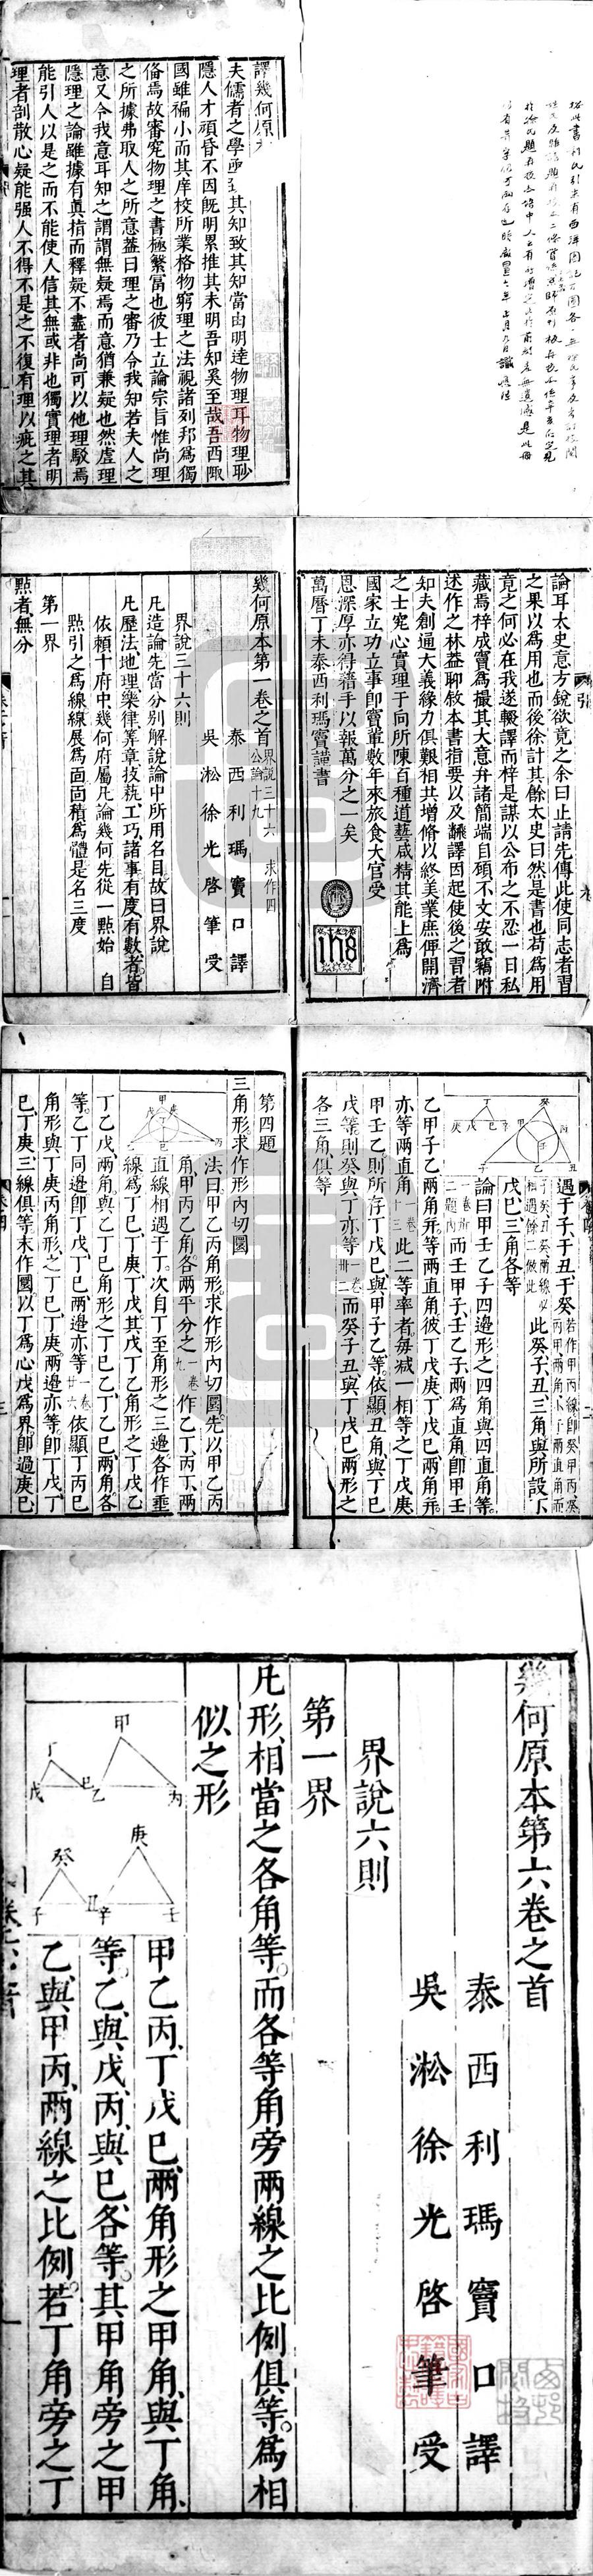 譯幾何原
夫儒者之學亟其知致其知當由明達物理耳物理眇
隱人才頑昏不因既明累推其未明吾知奚至哉吾西陬
國雖褊小而其庠校所業格物窮理之法視諸列邦爲獨
備焉故審究物理之書極繁富也彼士立論宗旨惟尚理
之所據弗取人之所意蓋曰理之審乃令我知若夫人之
意又令我意耳知之謂謂無疑焉而意猶兼疑也然虛理
隱理之論雖據有真指而釋疑不盡者尚可以他理駁焉
能引人以是之而不能使人信其無或非也獨實理者明
理者剖散心疑能強人不得不是之不復有理以疵之其
論耳太史意方銳欲竟之余曰止請先傳此使同志者習
之果以爲用也而後徐計其餘太史曰然是書也苟爲用
竟之何必在我遂輟譯而梓是謀以公布之不忍一日私
藏焉梓成竇爲撮其大意弁諸簡端自顧不文安敢竊附
述作之林蓋聊敘本書指要以及翻譯因起使後之習者
知夫創通大義緣力俱艱相共增修以終美業庶俾開濟
之士究心實理于向所陳百種道藝咸精其能上爲
國家立功立事即竇輩數年來旅食大官受
恩深厚亦得藉手以報萬分之一矣
萬曆丁未泰西利瑪竇謹書
幾何原本第一卷之首 界說三十六 求作四 公論十九
泰西利瑪竇口譯
吳淞徐光啓筆受
界說三十六則
凡造論先當分別解說論中所用名目故曰界說
凡曆法地理樂律筭章技藝工巧諸事有度有數者皆
依賴十府中幾何府屬凡論幾何先從一點始自
點引之爲線線展爲面面積爲體是名三度
第一界
點者無分
遇于子于丑于癸 若作甲丙線即癸甲丙癸丙甲兩角小于兩直角而子癸丑癸兩線必相遇餘二倣此 此癸子丑三角與所設丁
戊己三角各等
論曰甲壬乙子四邊形之四角與四直角等
一卷卅二題內 而壬甲子壬乙子兩爲直角即甲壬
乙甲子乙兩角并等兩直角彼丁戊庚丁戊己兩角并
亦等兩直角 一卷十三 此二等率者每減一相等之丁戊庚
甲壬乙則所存丁戊己與甲子乙等依顯丑角與丁己
戊等則癸與丁亦等 一卷卅二 而癸子丑與丁戊己兩形之
各三角俱等
第四題
三角形求作形內切圜
法曰甲乙丙角形求作形內切圜先以甲乙丙
角甲丙乙角各兩平分之 一卷九 作乙丁丙丁兩
直線相遇于丁次自丁至角形之三邊各作垂
線爲丁己丁庚丁戊其戊丁乙角形之丁戊乙
丁乙戊兩角與乙丁己角形之丁己乙丁乙己兩角各
等乙丁同邊即丁戊丁己兩邊亦等 一卷廿六 依顯丁丙己
角形與丁庚丙角形之丁己丁庚兩邊亦等即丁戊丁
己丁庚三線俱等末作圜以丁爲心戊爲界即過庚己
幾何原本第六卷之首
泰西利瑪竇口譯
吳淞徐光啓筆受
界說六則
第一界
凡形相當之各角等而各等角旁兩線之比例俱等爲相
似之形
甲乙丙丁戊己兩角形之甲角與丁角
等乙與戊丙與己各等其甲角旁之甲
乙與甲丙兩線之比例若丁角旁之丁